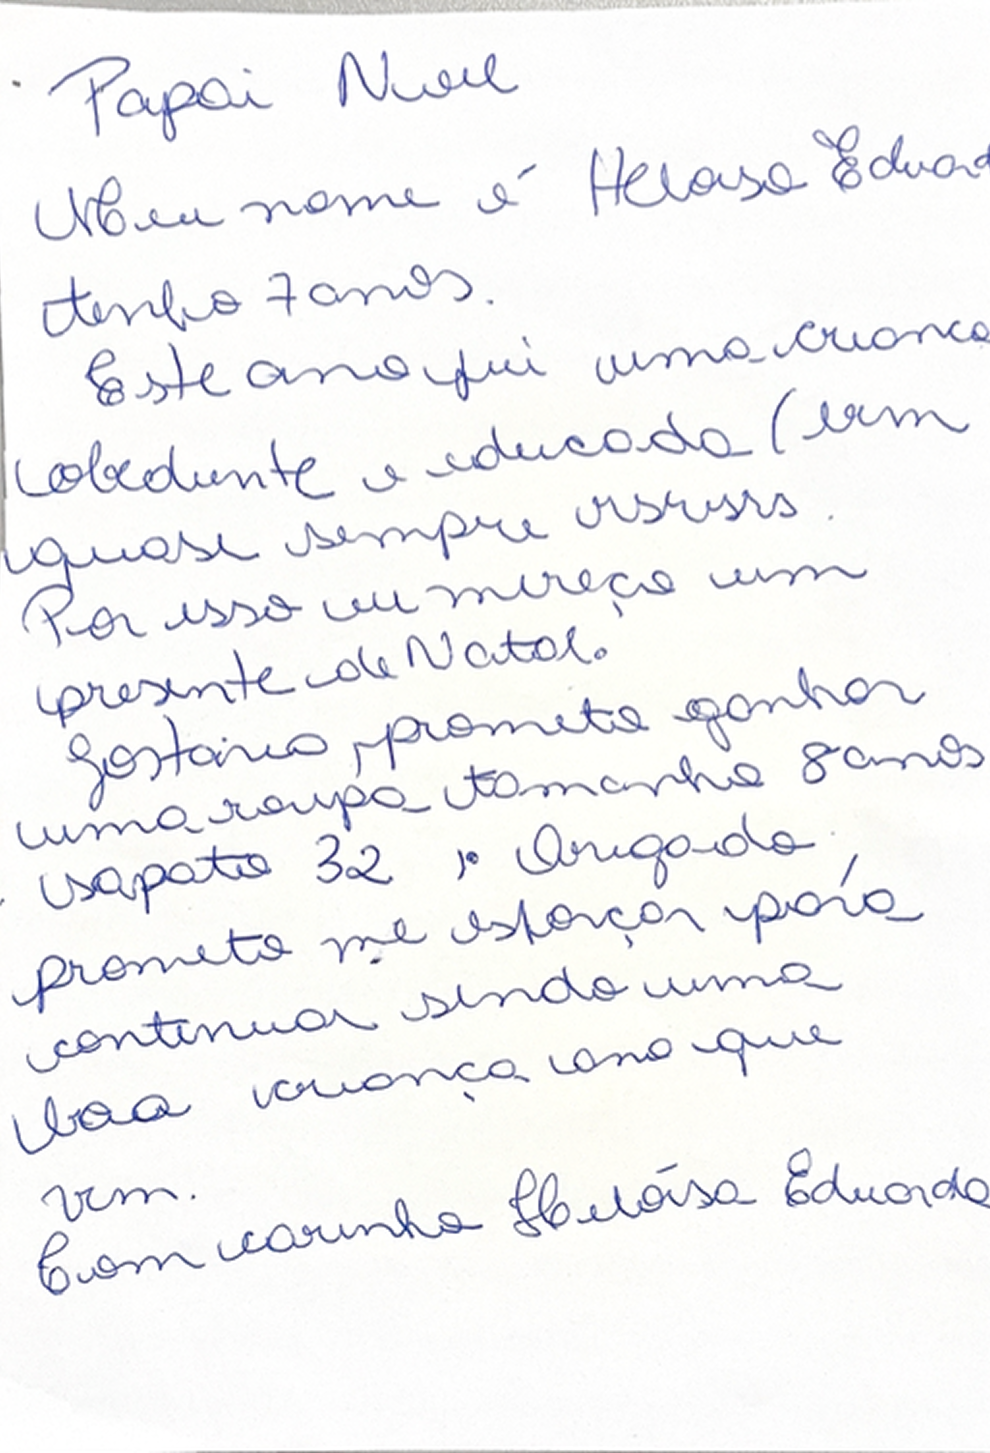 Papai Noel
Meu nome é Heloisa Eduard
tenho 7 anos.
Este ano fui uma criança
obediente e educada (bem
quase sempre rsrsrs.
Por isso eu mereço um
presente de Natal.
Gostaria, prometo ganhar
uma roupa tamanho 8 anos
sapato 32, Obrigada
prometo me esforçar para
continuar sendo uma
boa criança ano que
vem.
Com carinho Heloísa Eduarda